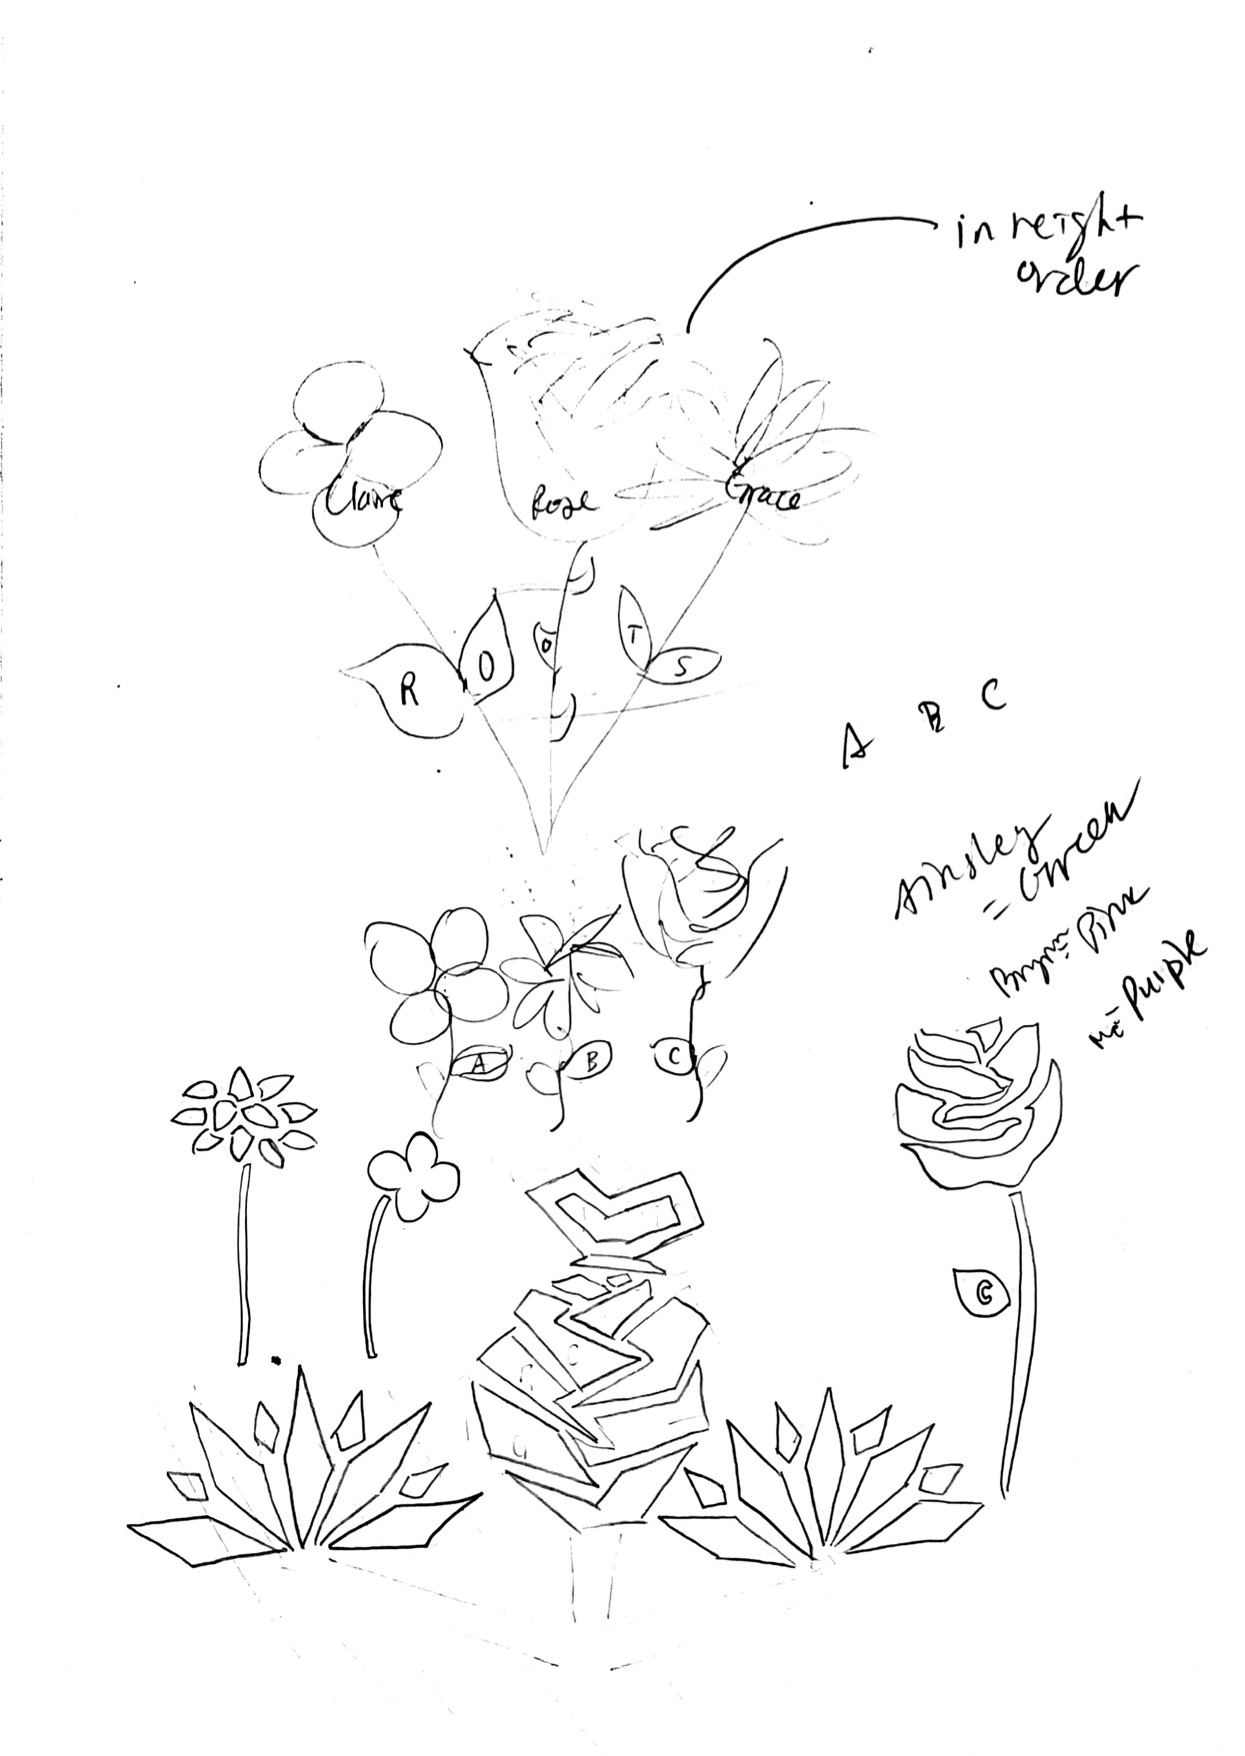 in height
order
Claire
Rose
Grace
R
O
O
T
S
A B C
Ainsley
= Green
Brynn = Pink
Me = Purple
A
B
C
C